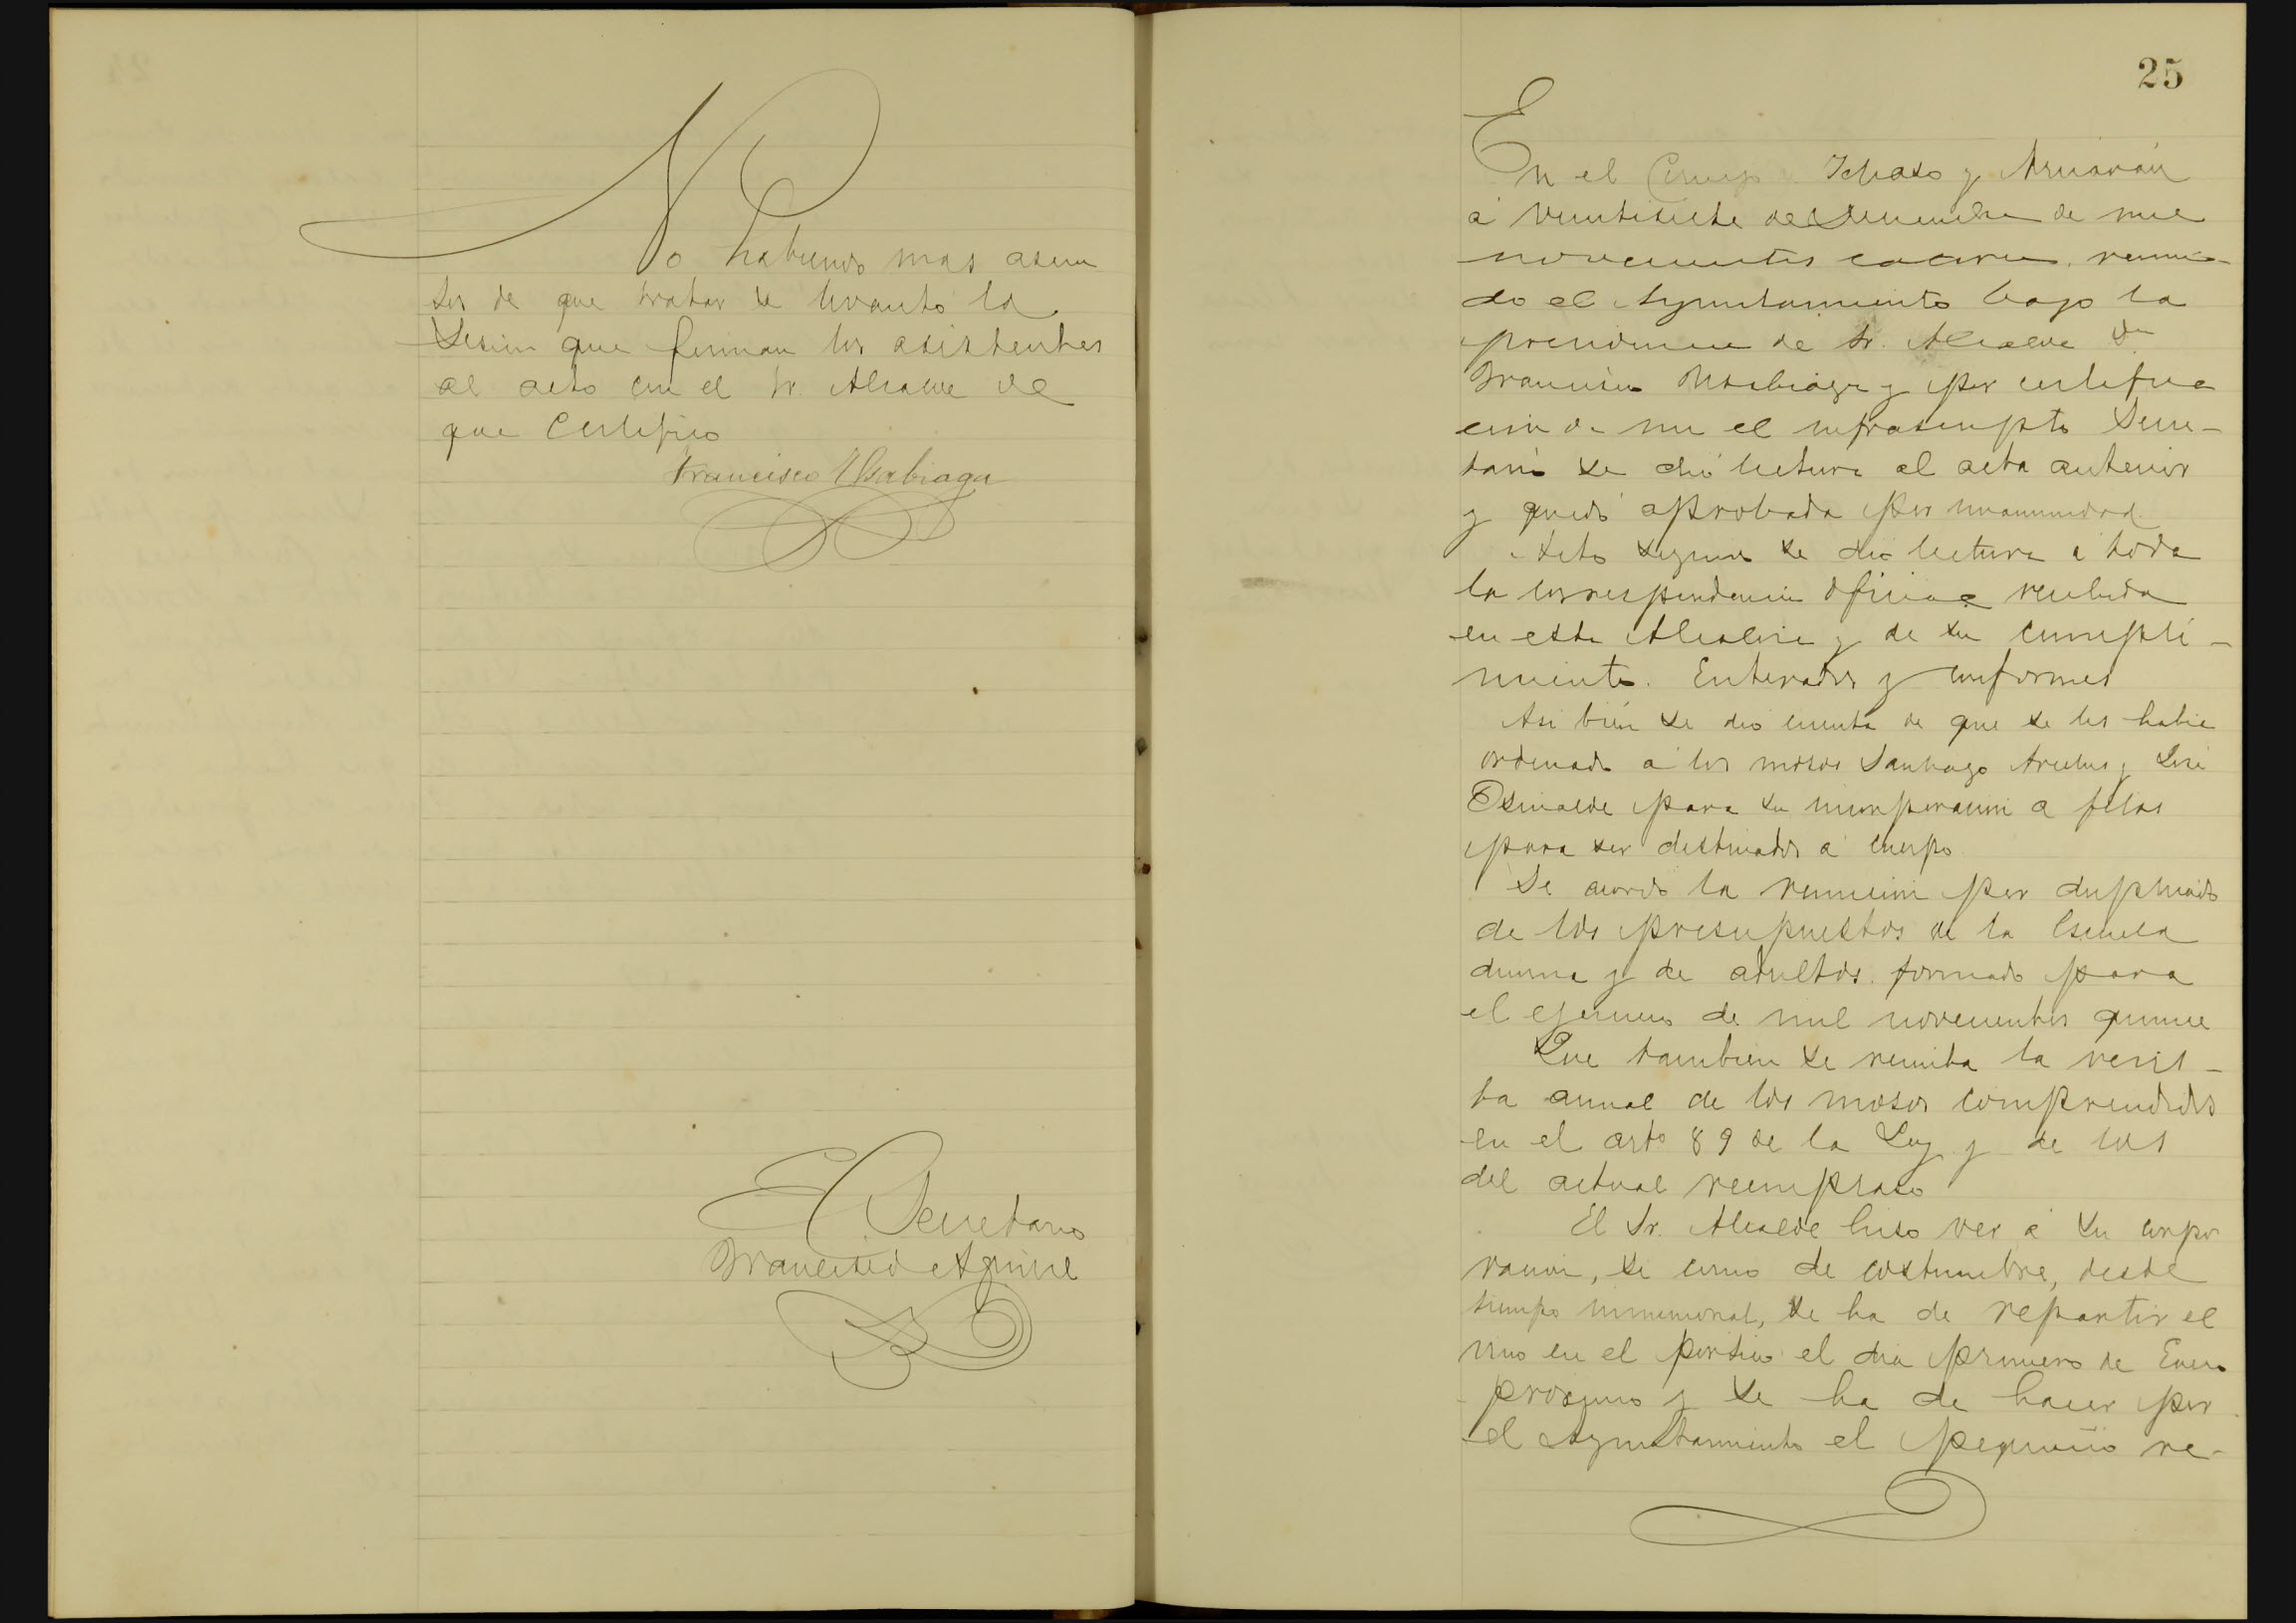 No habiendo mas asun
tos de que tratar se levantó la
Sesion que firman los asistentes
al acto con el Sr. Alcalde de
que Certifico
Francisco Usabiaga
El Secretario
Francisco Aguirre
25
En el Concejo de Ichaso y Arriarán
á veintisiete de Diciembre de mil
novecientos catorce, reuni-
do el Ayuntamiento bajo la
presidencia de Sr. Alcalde Dn
Francisco Usabiaga y por certifica
cion de mi el infrascripto Secre-
tario se dió lectura al acta anterior
y quedó aprobada por unanimidad.
Acto seguido se dio lectura á toda
la correspondencia oficial recibida
en esta Alcaldia y de su cumpli-
miento. Enterados y conformes
Asi bien se dio cuenta de que se les habia
ordenado á los mosos Santiago y José
para su incorporacion a filas
para ser destinados á cuerpo.
Se acordó la remision por duplicado
de los presupuestos de la Escuela
diurna y de adultos formado para
el ejercicio de mil novecientos quince
Que tambien se remita la revis-
ta anual de los mosos comprendidos
en el arto 89 de la Ley y de los
del actual reemplaso
El Sr. Alcalde hiso ver á su corpo
racion, si como de costumbre, desde
tiempo inmemorial, se ha de repartir el
vino en el portico el dia primero de Enero
proximo y se ha de hacer por
el Ayuntamiento el pequeño re-